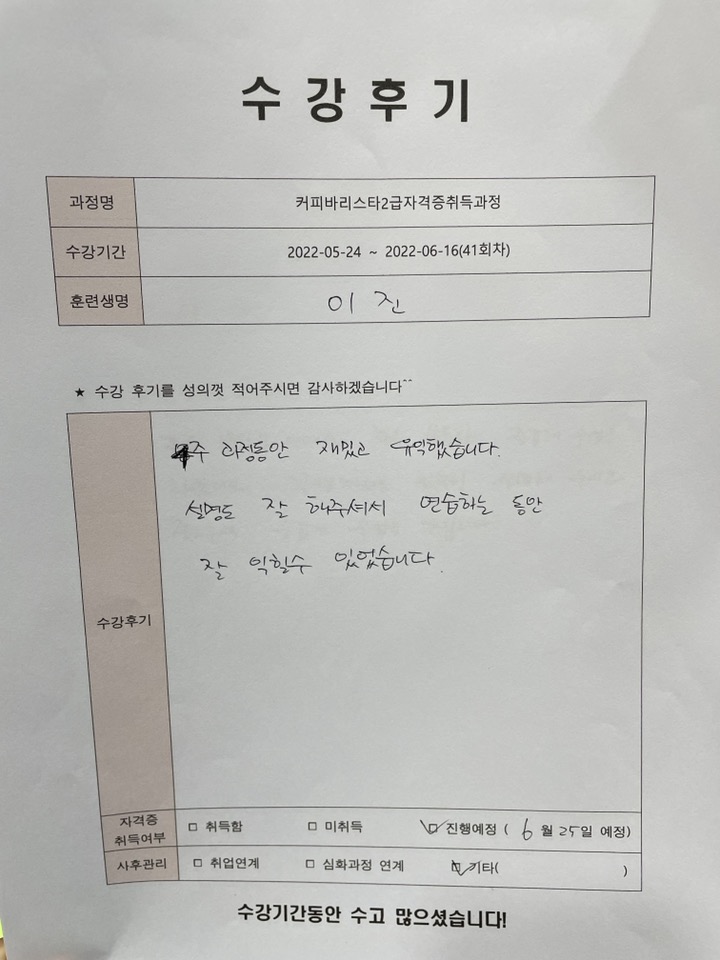 수강후기
과정명 커피바리스타2급자격증취득과정
수강기간 2022-05-24 ~ 2022-06-16(41회차)
훈련생명 이진
★ 수강 후기를 성의껏 적어주시면 감사하겠습니다^^
수강후기
4주 과정동안 재밌고 유익했습니다.
설명도 잘 해주셔서 연습하는 동안
잘 익힐수 있었습니다.
자격증
취득여부
□ 취득함 □ 미취득 ☑ 진행예정 ( 6월 25일 예정)
사후관리 □ 취업연계 □ 심화과정 연계 ☑ 기타( )
수강기간동안 수고 많으셨습니다!